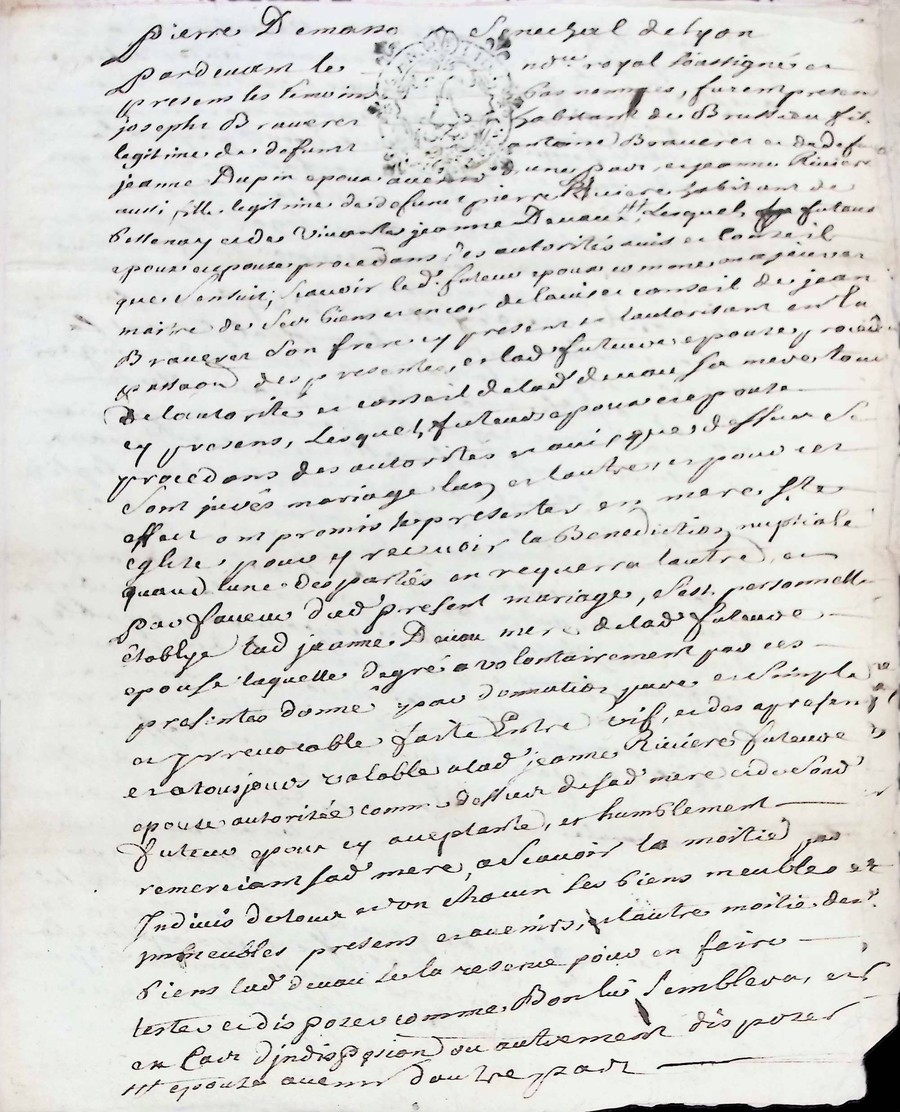 pierre Demasso Senechal de Lyon
pardevant le no.re royal soussigné et
present les temoins bas nommes, furent present
joseph Braveret habitant de Brussieu fil
legitime de defunt antoine Braveret et de defu
jeanne Dupin epoux avenir d'une part, et jeanne Riviere
aussi fille legitime de defunt pierre Riviere habitant de
et de vivante jeanne Devaux, Lesquels futeurs
epoux et epouze procedans des autorités avis et Conseil
que s'ensuit, scavoir le d.t futeur epoux comme majeur et
maitre de ses biens et encor de lavis et conseil de jean
Braveret son frere cy present et l'autorisant en la
passaon des presentes, et lad. futeure epouze procedan
de lautorité et conseil de lad. devau sa mere tous
cy presens, Lesquels futeurs epoux et epouze
procedans des autorités et avis que dessus se
sont jurés mariage lun et lautre, et pour cet
effect ont promis se presenter en mere s.te
eglize, pour y recevoir la Benediction nuptiale
quand lune des parties en requerra lautre, et
par faveur dud. present mariage, s'est personnelle
établye lad. jeanne Devau mere de lad. futeure
epouse laquelle de gré a volontairement par ces
presentes donné par donnation pure et simple
et jrrevocable faite Entre vif, et des apresen
et a tousjours valable a lad. jeanne Riviere futeure
epouze autorizée comme dessus de sad. mere et de sond.
futeur epoux cy acceptante, et humblement
remerciant sad. mere, a scavoir la moitié par
Indivis de tous et un chacun ses biens meubles et
jmmeubles presens et avenirs, et lautre moitié des d.
biens lad. devau se la reserve pour en faire
tester et dispozer comme Bon luy semblera, et
en Cas d'jndispozion ou autrement dispozer
epouze avenir dautre part